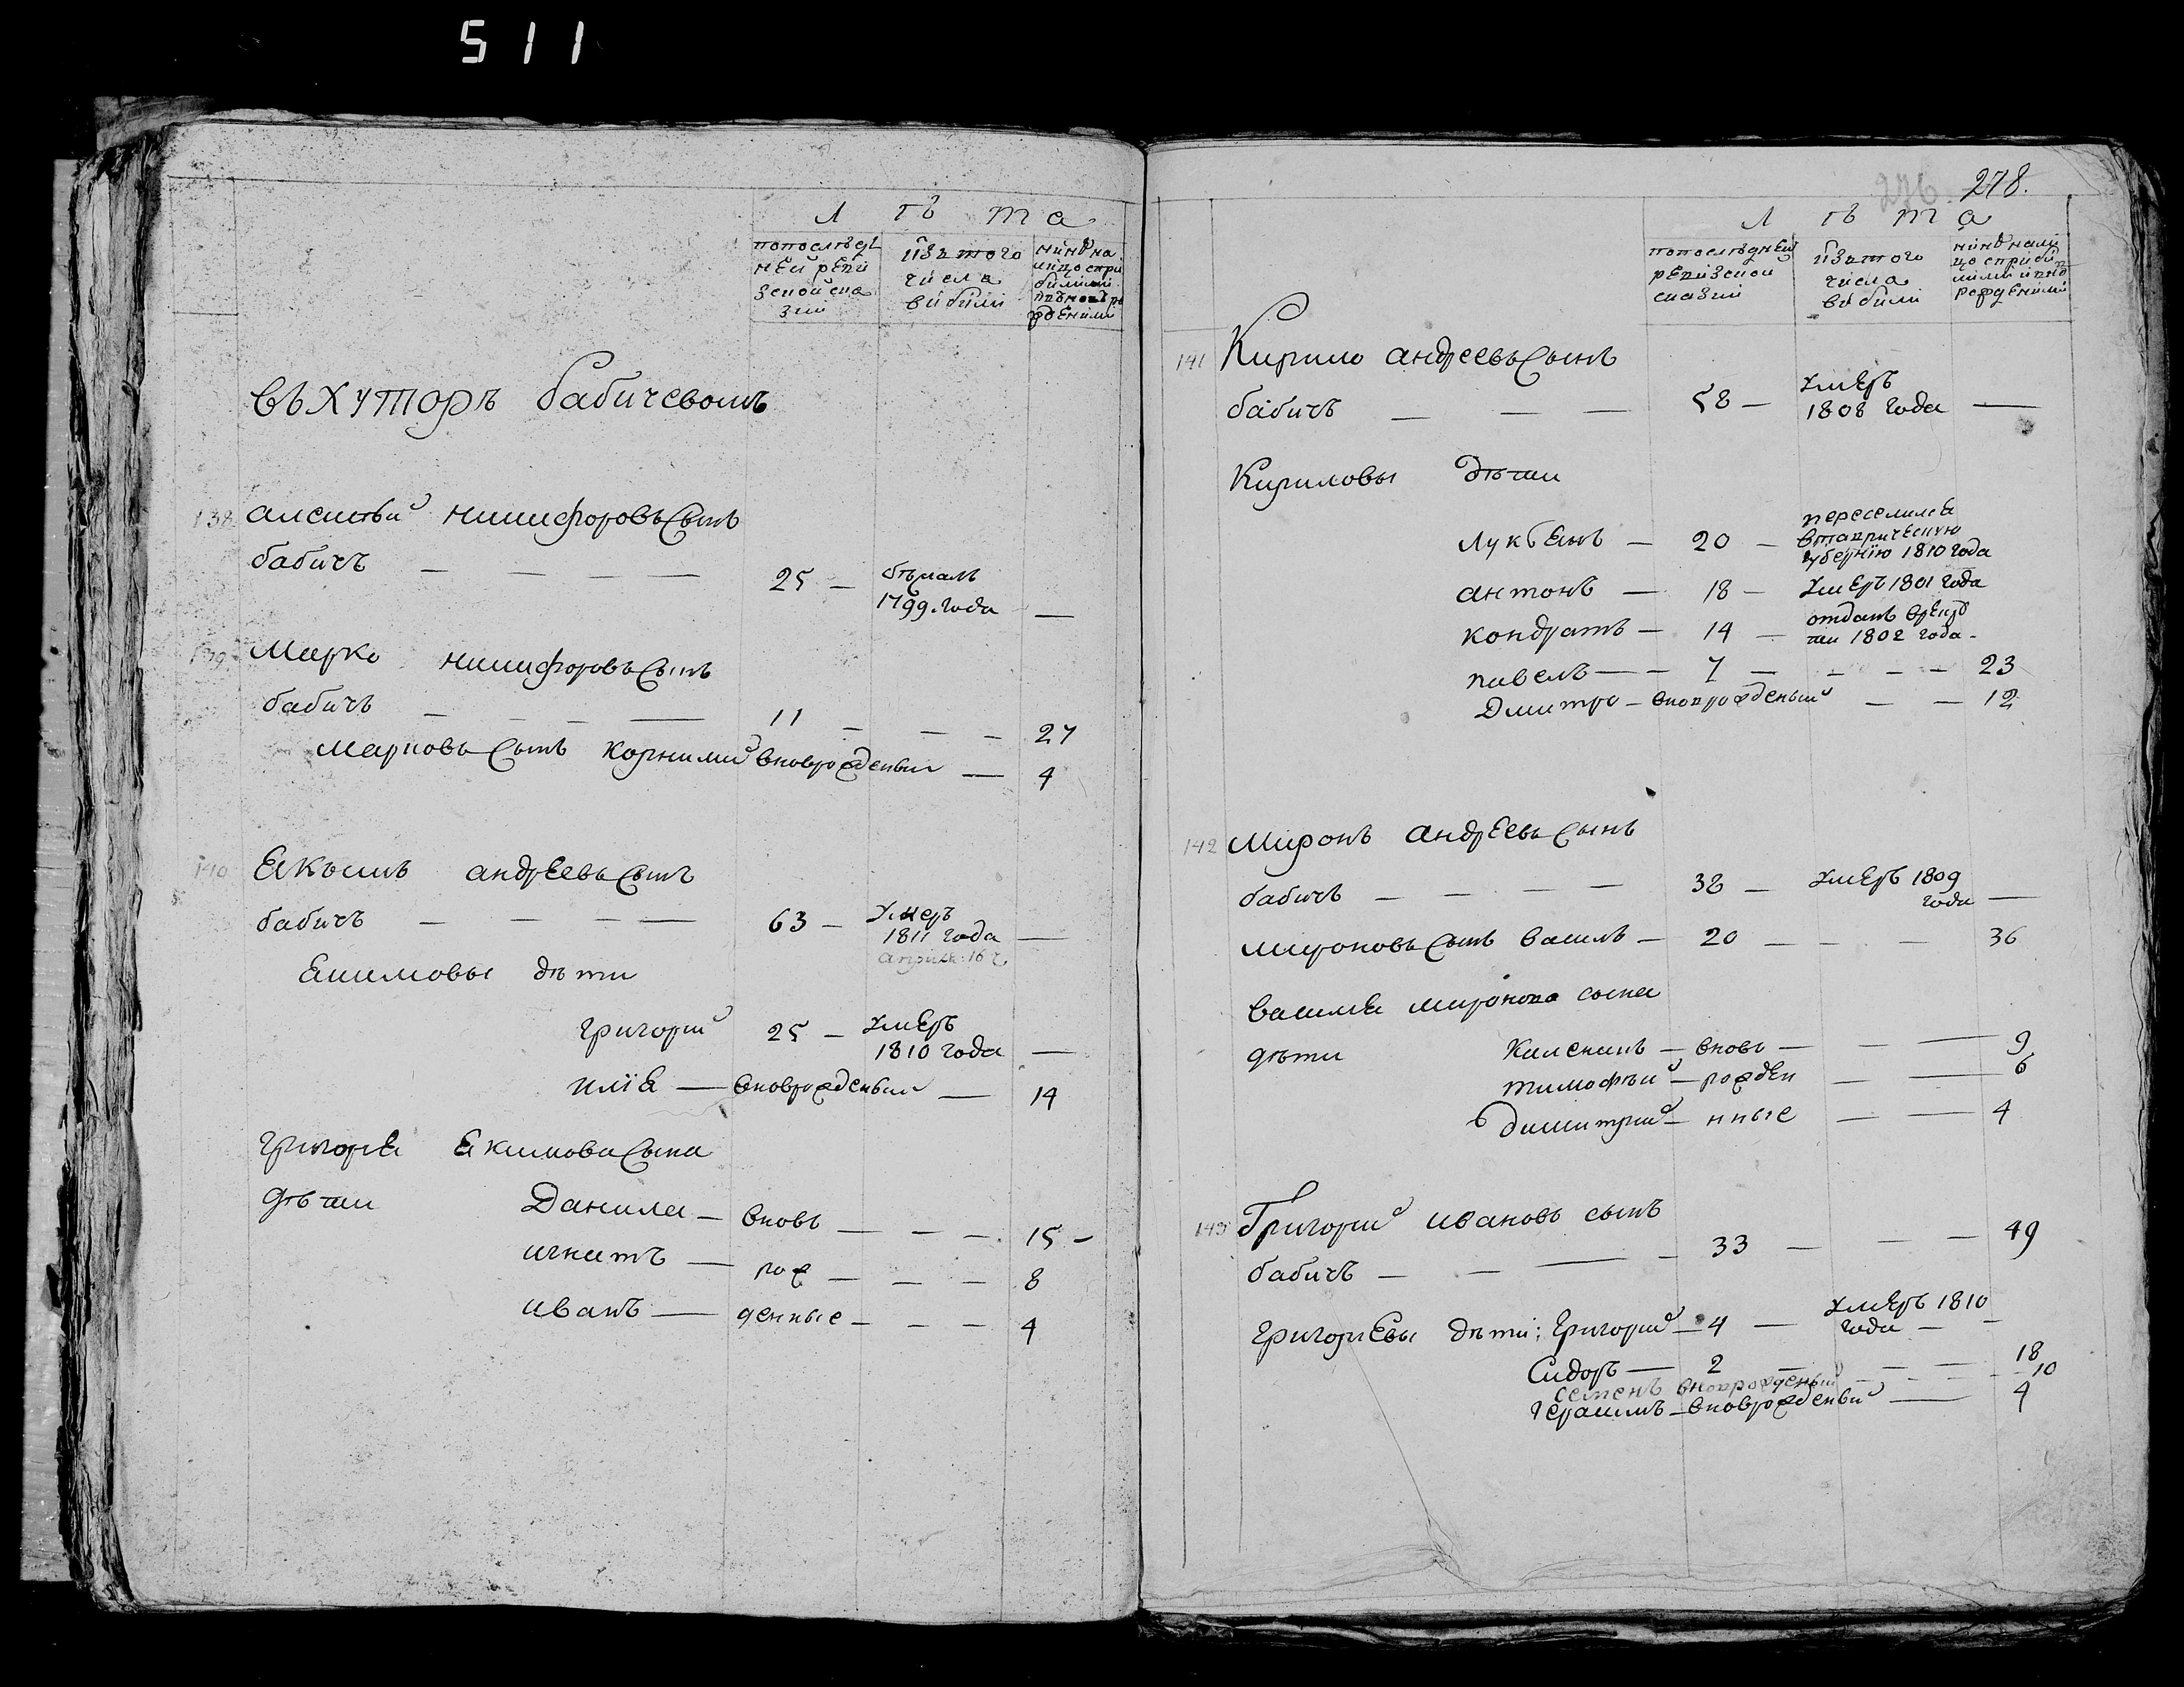 511
Л ѣ та
попослѣд
ней реви
зской ска
зки
изътого
числа
выбыли
въ хуторѣ бабичевомъ
138 алексѣй никифоровъ сынъ
бабичъ — — — — 25 — бѣжалъ
1799. года —
139 Марко никифоровъ сынъ
бабичъ — — — — 11 — — — 27
марковъ сынъ корнилий вновърожденый — 4
140 Екимъ андреевъ сынъ
бабичъ — — — — 63 — умеръ
1811 года —
апреля 16 ч
Екимовы дѣти
григорий 25 — умеръ
1810 года —
илія — вновърожденый — 14
григория Екимова сына
дѣти Данила — вновь — — — 15 —
игнатъ — рож — — — 8
иванъ — денные — — — 4
276. 278.
Л ѣ та
попослѣдней
ревизской
сказки
изътого
числа
выбыли
141 Кирило андреевъ сынъ
бабичъ — — — 58 — умеръ
1808 года —
Кириловы дѣти
лукьянъ — 20 — переселился
втаврическую
губернію 1810 года
антонъ — 18 — умеръ 1801 года
кондратъ — 14 — отданъ врекру
ти 1802 года —
павелъ — — 7 — — — — 23
Дмитро — вновърожденый — — 12
142 Миронъ андреевъ сынъ
бабичъ — — — — 38 — умеръ 1809
года —
мироновъ сынъ василь — 20 — — — 36
василия миронова сына
дѣти — вновь — — — 9
тимофѣй — рожде — — 6
димитрий — нные — — 4
143 Григорий ивановъ сынъ
бабичъ — — — — 33 — — — 49
григориевы дѣти: григорий — 4 — умеръ 1810
года — —
Сидоръ — 2 — — — 18
семенъ вновърожденый — — — 10
герасимъ — вновърожденый — 4